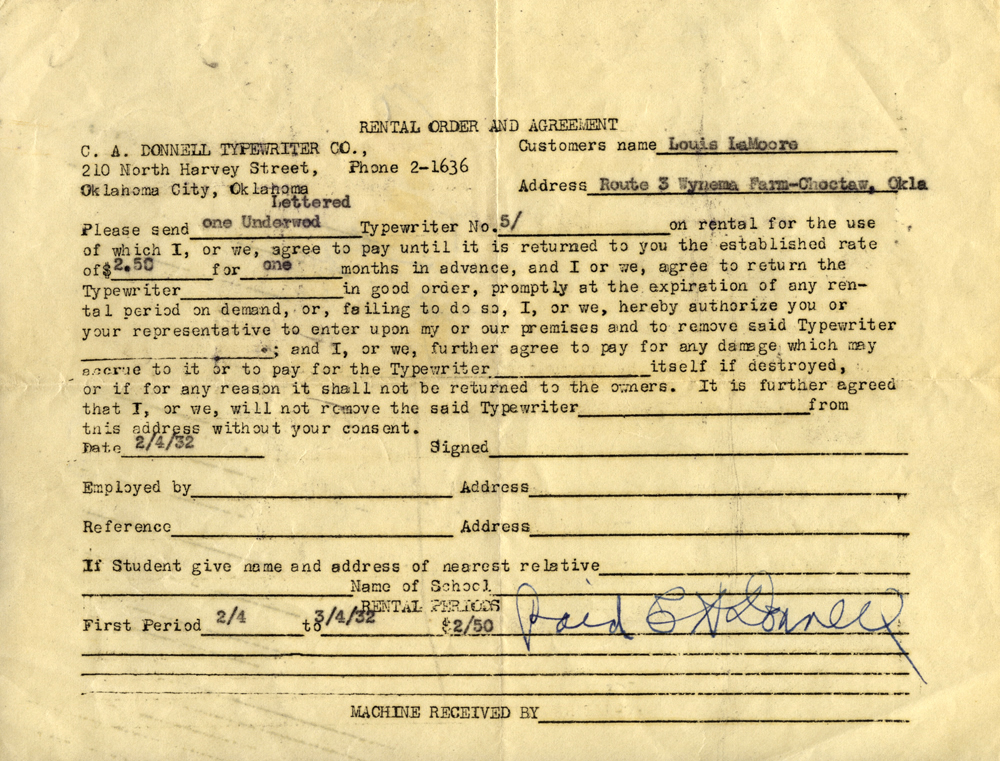 RENTAL ORDER AND AGREEMENT
C. A. DONNELL TYPEWRITER CO., Customers name Louis LaMoore
210 North Harvey Street, Phone 2-1636
Oklahoma City, Oklahoma Address Route 3 Wynema Farm-Choctaw, Okla
Lettered
Please send one Underwod Typewriter No. 5/ on rental for the use
of which I, or we, agree to pay until it is returned to you the established rate
of $2.50 for one months in advance, and I or we, agree to return the
Typewriter in good order, promptly at the expiration of any ren-
tal period on demand, or, failing to do so, I, or we, hereby authorize you or
your representative to enter upon my or our premises and to remove said Typewriter
; and I, or we, further agree to pay for any damage which may
accrue to it or to pay for the Typewriter itself if destroyed,
or if for any reason it shall not be returned to the owners. It is further agreed
that I, or we, will not remove the said Typewriter from
this address without your consent.
Date 2/4/32 Signed
Employed by Address
Reference Address
If Student give name and address of nearest relative
Name of School
RENTAL PERIODS
First Period 2/4 to 3/4/32 $2/50 Paid C A Donnell
MACHINE RECEIVED BY